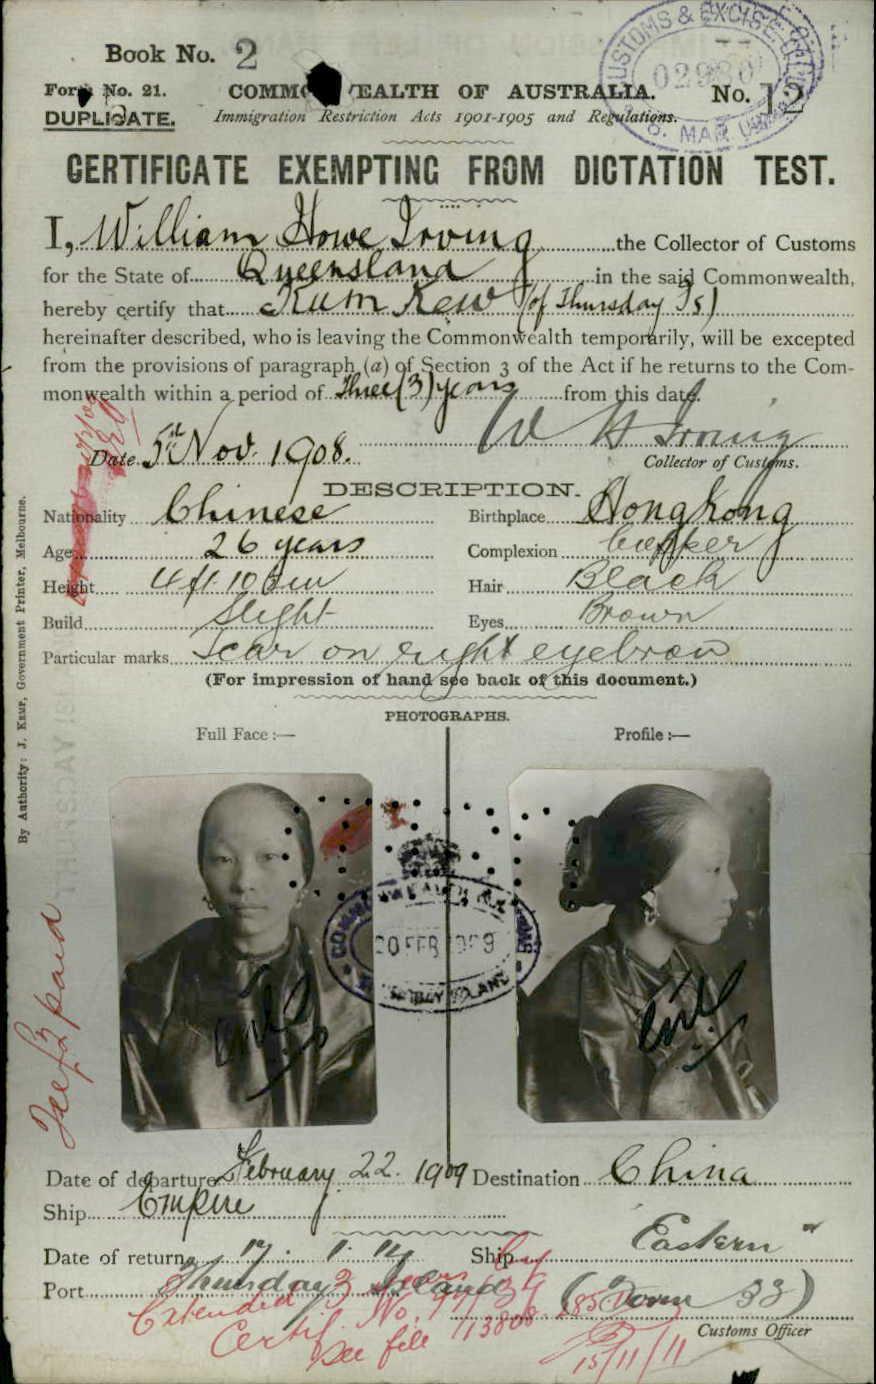 Book No. 2
Form No. 21.
COMMONWEALTH OF AUSTRALIA.
No. 12
DUPLICATE.
Immigration Restriction Acts 1901-1905 and Regulations.
CUSTOMS & EXCISE
02980
CERTIFICATE EXEMPTING FROM DICTATION TEST.
I, William Howe Irving the Collector of Customs
for the State of Queensland in the said Commonwealth,
hereby certify that Kum Kew (of Thursday Is)
hereinafter described, who is leaving the Commonwealth temporarily, will be excepted
from the provisions of paragraph (a) of Section 3 of the Act if he returns to the Com-
monwealth within a period of Three (3) years from this date.
W H Irving
Date 5th Nov. 1908.
Collector of Customs.
DESCRIPTION.
Nationality Chinese
Birthplace Hong Kong
Age 26 years
Complexion Copper
Height
Hair Black
Build Slight
Eyes Brown
Particular marks Scar on right eyebrow
(For impression of hand see back of this document.)
PHOTOGRAPHS.
Full Face :—
Profile :—
20 FEB 1909
By Authority: J. Kemp, Government Printer, Melbourne.
Fee £1 paid
Date of departure February 22. 1909
Destination China
Ship Empire
Date of return 17. 1. 14
Ship Eastern
Port Thursday Island
(Form 32)
Extended 3 years by
Certif. No.
See file
15/11/11
Customs Officer